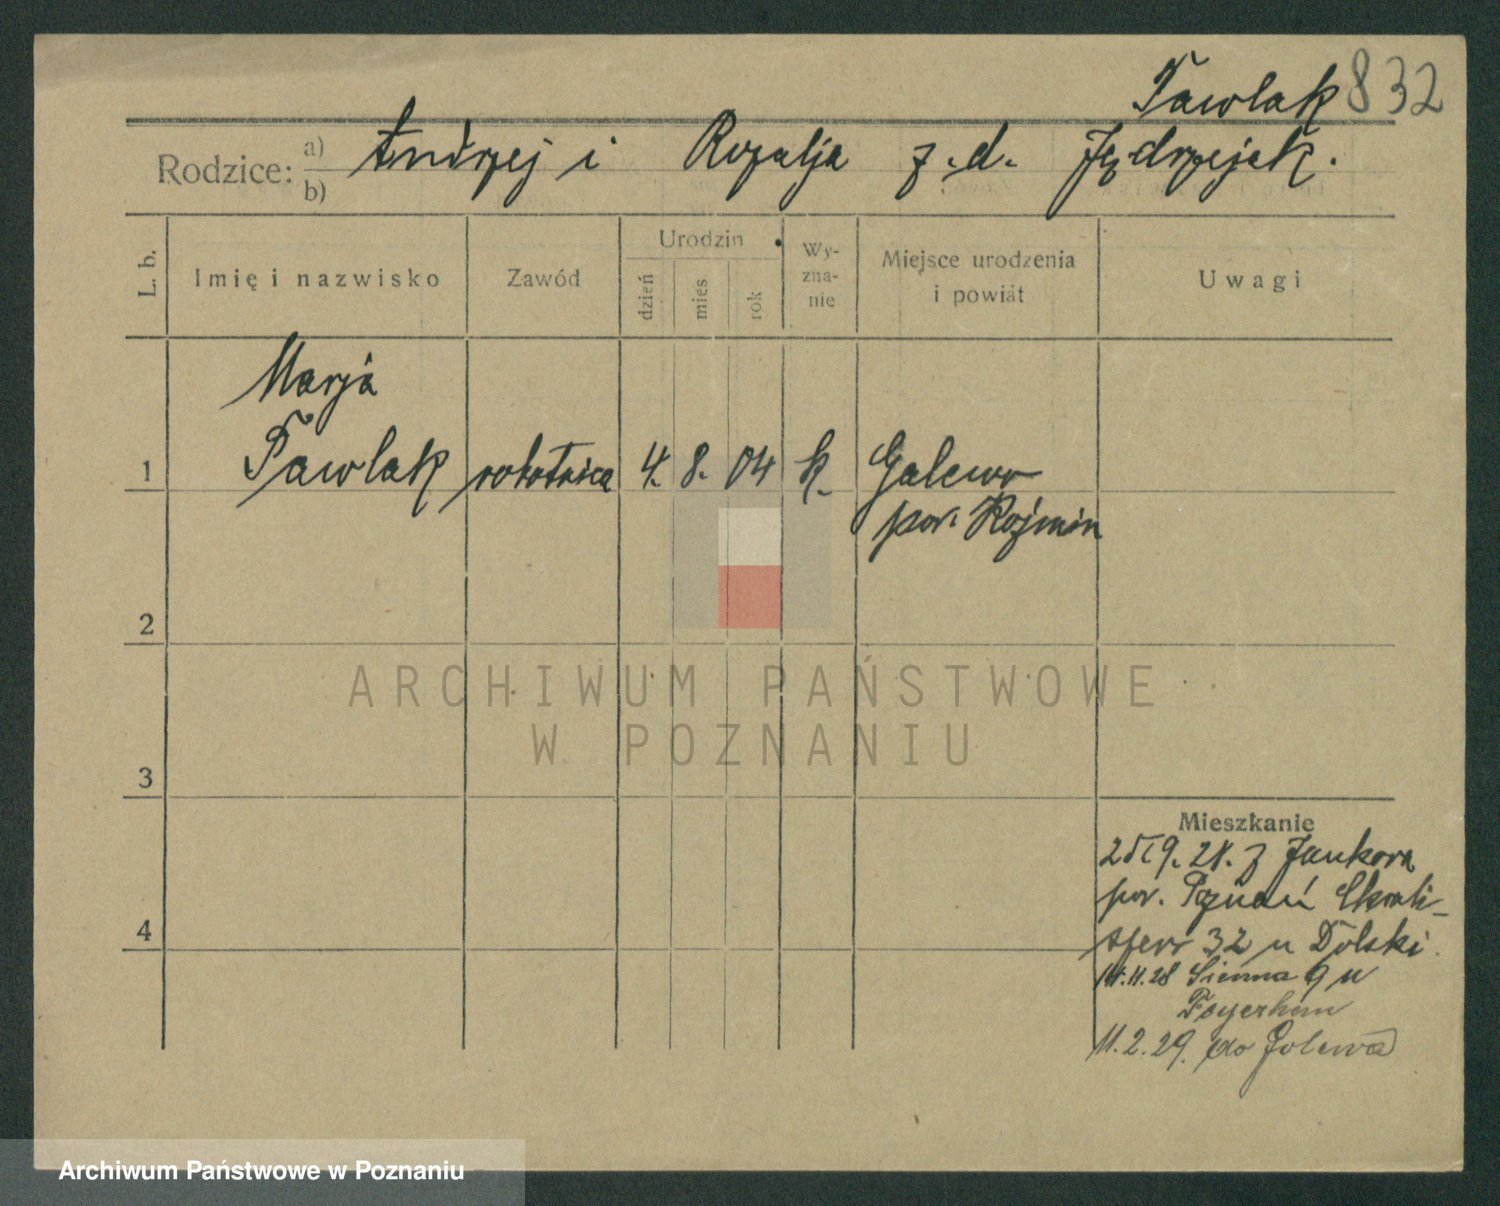 Pawlak 832
Rodzice: a) b) Andrzej i Rozalja z.d. Jędrzejak.
L. b.
Imię i nazwisko
Zawód
Urodzin
dzień
mies
rok
Wy-
zna-
nie
Miejsce urodzenia
i powiat
Uwagi
Marja
1 Pawlak robotnica 4. 8. 04 k. Galewo
pow. Koźmin
2
ARCHIWUM PAŃSTWOWE
W POZNANIU
3
Mieszkanie
28. z Jankowa
pow. Poznań
4
32 u Dolski
14.11.28 Sienna 9 u
11.2.29. do Golewa
Archiwum Państwowe w Poznaniu